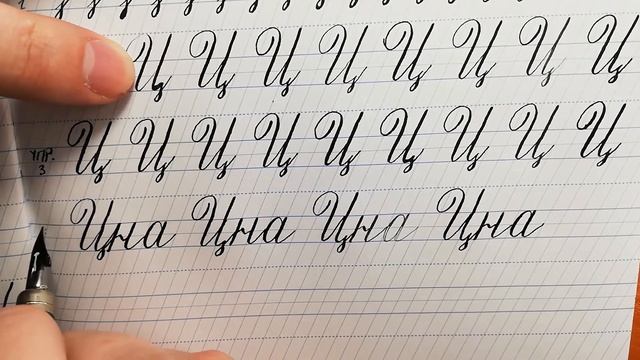 Ц Ц Ц Ц Ц Ц Ц Ц
УПР. 3 Ц Ц Ц Ц Ц Ц Ц Ц Ц
Цна Цна Цна Цна